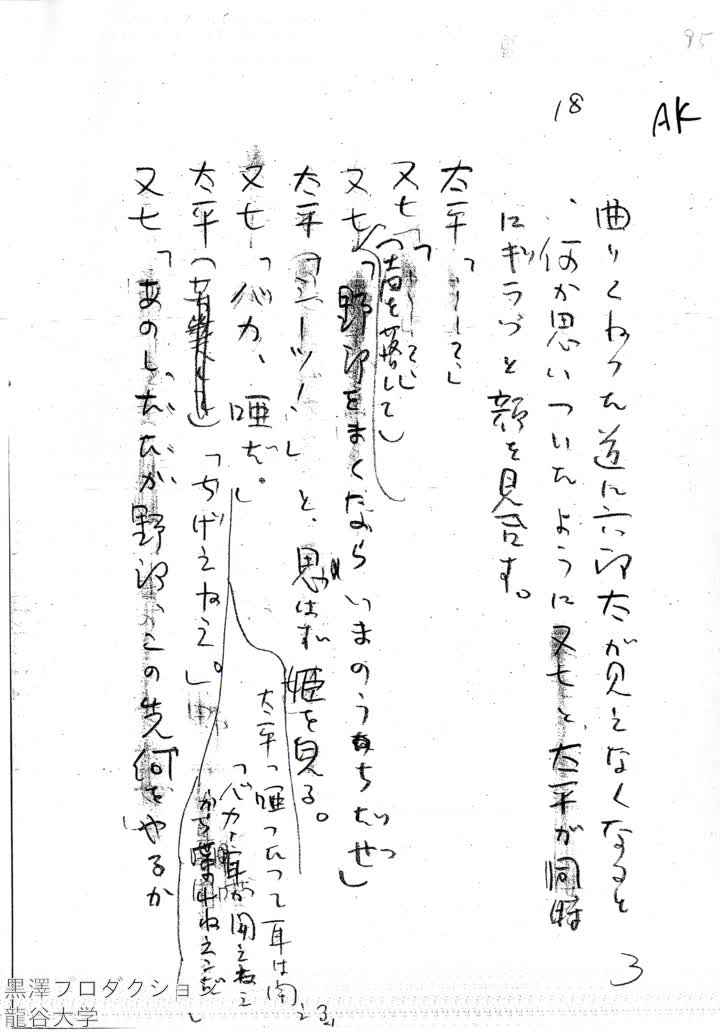 95
AK
18
曲りくねった道に六郎太が見えなくなると
、何か思いついたように又七と太平が同時
にギラッと顔を見合す。
太平「……」
又七「
（声を落して）
又七「野郎をまくなら、いまのうちだぜッ」
太平「シーッ！」と、思はず姫を見る。
又七「バカ、唖だ。」
太平「唖だって耳は聞
「バカ、耳が聞えねえ
から
太平（苦笑して）「ちげえねえ。」
又七「あのし、だが野郎、この先何をやるか
3
黒澤プロダクショ
龍谷大学